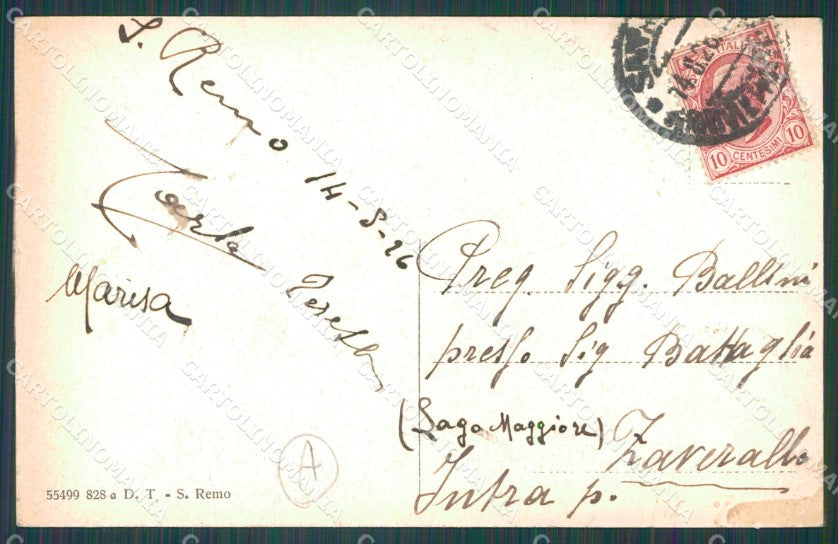 S. Remo 14-8-26
Carla Teresa
Marisa
Preg. Sigg. Ballini
presso Sig Battaglia
(Lago Maggiore) Zaverallo
Intra p.
55499 828 a D. T. - S. Remo
A
10 CENTESIMI 10
CARTOLINOMANIA